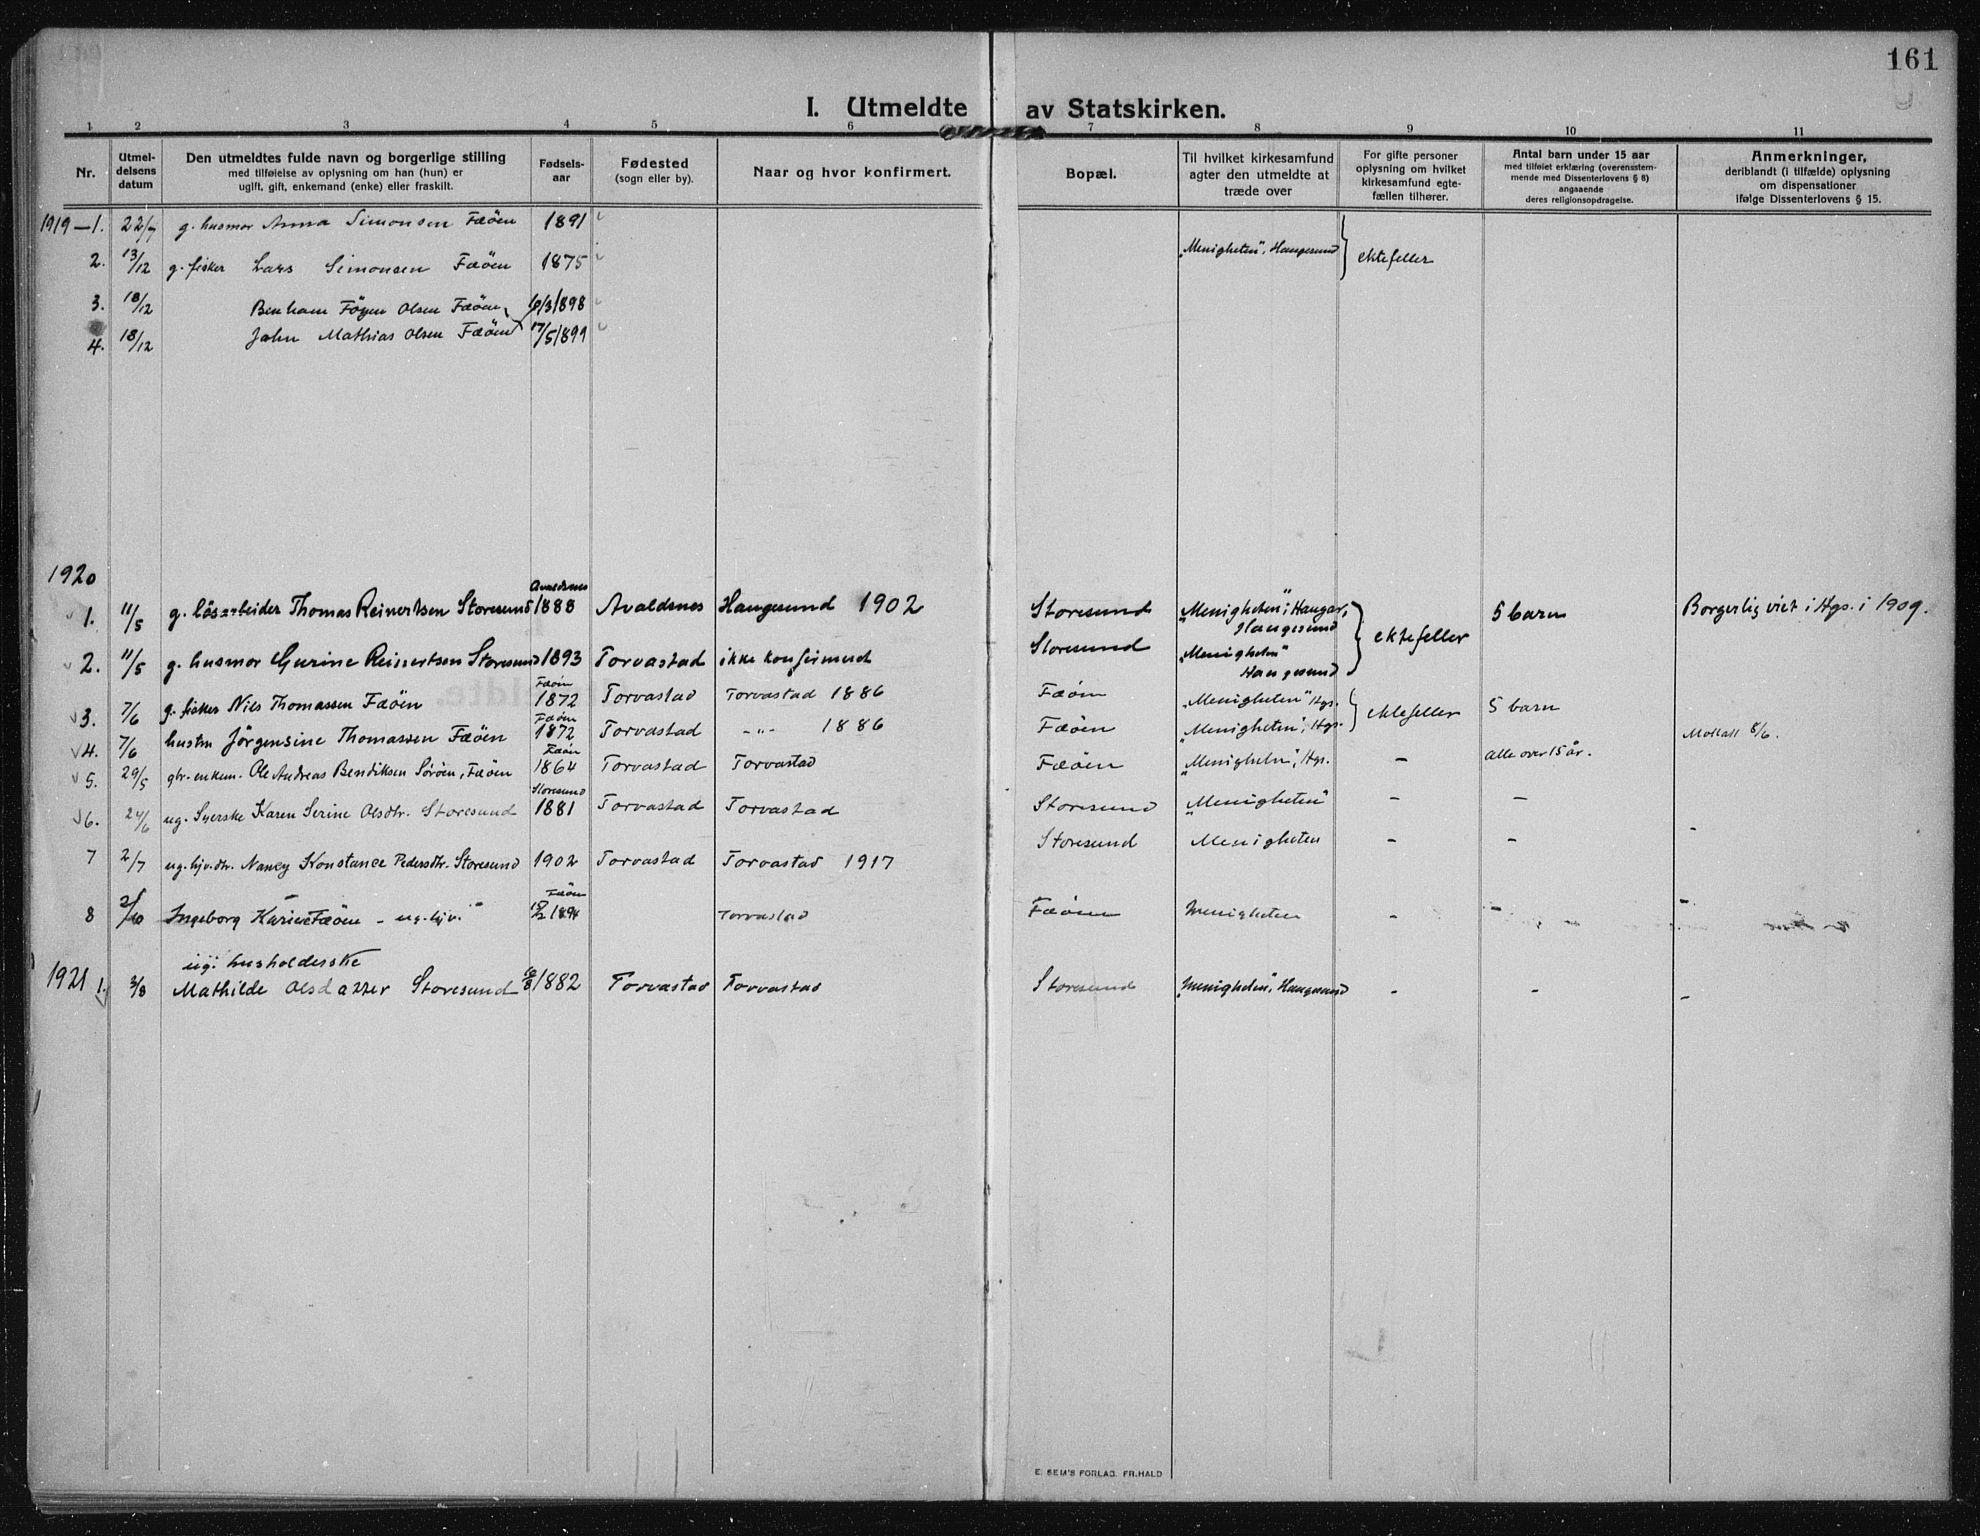 161
I. Utmeldte av Statskirken.
1 2 3 4 5 6 7 8 9 10 11
Nr.
Utmel-
delsens
datum
Den utmeldtes fulde navn og borgerlige stilling
med tilføielse av oplysning om han (hun) er
ugift, gift, enkemand (enke) eller fraskilt.
Fødsels-
aar
Fødested
(sogn eller by).
Naar og hvor konfirmert.
Bopæl.
Til hvilket kirkesamfund
agter den utmeldte at
træde over
For gifte personer
oplysning om hvilket
kirkesamfund egte-
fællen tilhører.
Antal barn under 15 aar
med tilføiet erklæring (overensstem-
mende med Dissenterlovens § 8)
angaaende
deres religionsopdragelse.
Anmerkninger,
deriblandt (i tilfælde) oplysning
om dispensationer
ifølge Dissenterlovens § 15.
1919—1. 22/7 g. husmor Anna Simonsen Fæøen 1891
2. 13/12 g. fisker Lars Simonsen Fæøen 1875 "Menigheten", Haugesund } ektefeller
3. 18/12 Olsen Fæøen /3 1898
4. 18/12 John Mathias Olsen Fæøen 17/5 1899
1920
Avaldsnes
1. 11/5 g. løsarbeider Thomas Reinertsen Storesund 1888 Avaldsnes Haugesund 1902 Storesund "Menigheten", Haugar, Haugesund } ektefeller 5 barn Borgerlig viet i Hgs. i 1909.
2. 11/5 g. husmor Gurine Reinertsen Storesund 1893 Torvastad ikke konfirmert Storesund "Menigheten" Haugesund
Fæøen
3. 7/6 g. fisker Nils Thomassen Fæøen 1872 Torvastad Torvastad 1886 Fæøen "Menigheten" Hgs. } ektefeller 5 barn
Fæøen
4. 7/6 hustru Jørgensine Thomassen Fæøen 1872 Torvastad -"- 1886 Fæøen "Menigheten", Hgs. Mottatt 8/6.
Fæøen
5. 29/5 gbr. enkem. Ole Andreas Bendiksen Sørøen, Fæøen 1864 Torvastad Torvastad Fæøen "Menigheten", Hgs. – alle over 15 år.
Storesund
6. 24/6 ug. Syerske Karen Serine Olsdtr. Storesund 1881 Torvastad Torvastad Storesund "Menigheten" – –
7 2/7 ug. hjv. dtr. Nancy Konstance Pedersdtr. Storesund 1902 Torvastad Torvastad 1917 Storesund Menigheten – – –
Fæøen
8 2/10 Ingeborg Karine Fæøen – ug. hjv. 1894 Torvastad Fæøen Menigheten – – –
ug. husholderske
1921 1. 3/8 Mathilde Olsdatter Storesund 1882 Torvastad Torvastad Storesund "Menigheten", Haugesund – – –
E. SEM'S FORLAG. FR.HALD